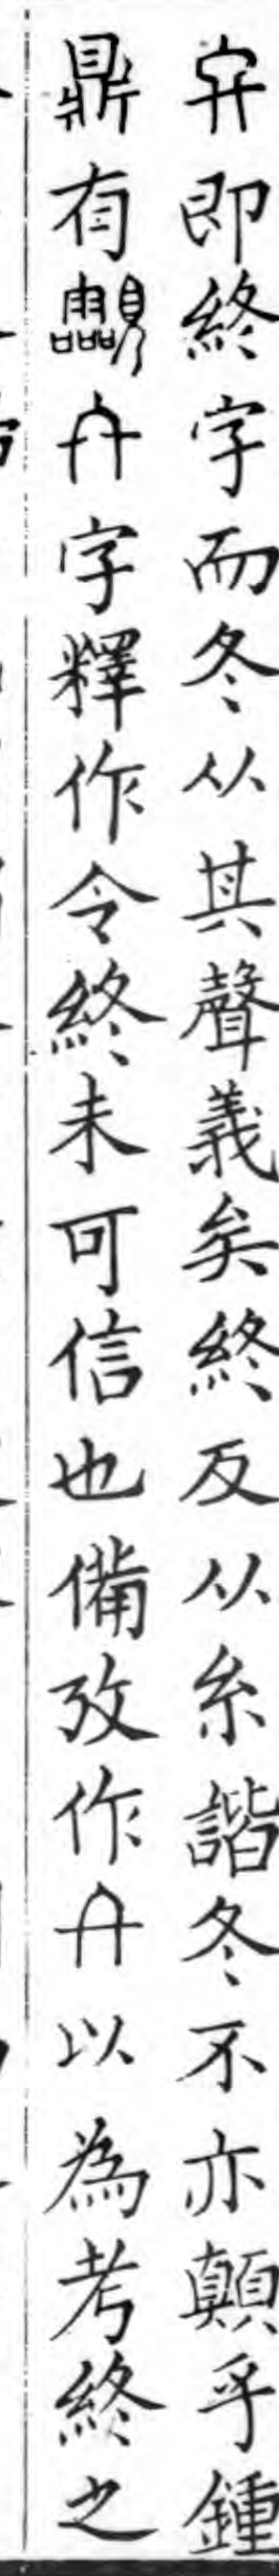 即終字而冬从其聲義矣終反从糸諧冬不亦顛乎鍾
鼎有字釋作令終未可信也備攷作以為考終之